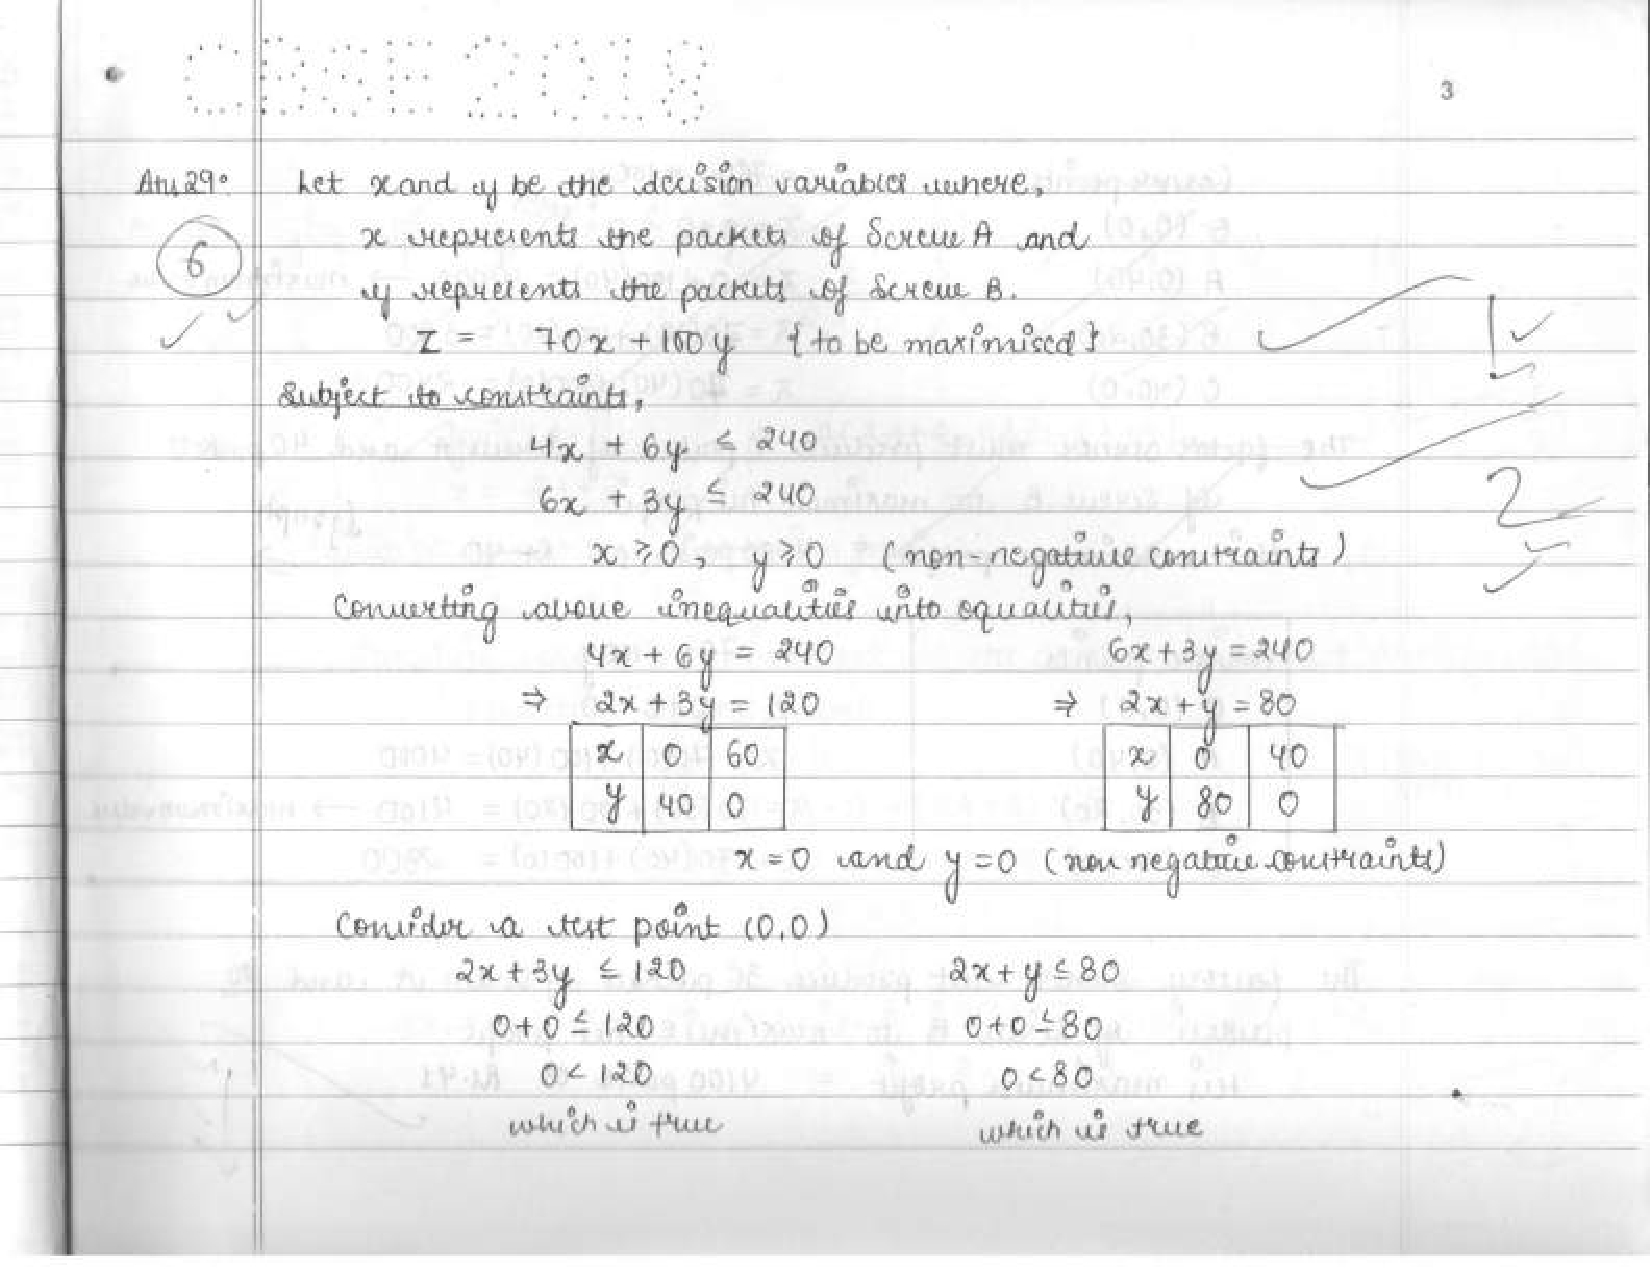 CBSE 2018
3
Ans 29: Let x and y be the decision variables where,
6
x represents the packets of Screw A and
y represents the packets of Screw B.
Z = 70x + 100y {to be maximised}
1
Subject to constraints,
4x + 6y ≤ 240
6x + 3y ≤ 240
2
x ≥ 0, y ≥ 0 (non-negative constraints)
Converting above inequalities into equalities,
4x + 6y = 240 6x + 3y = 240
⇒ 2x + 3y = 120 ⇒ 2x + y = 80
x 0 60 x 0 40
y 40 0 y 80 0
x = 0 and y = 0 (non negative constraints)
Consider a test point (0,0)
2x + 3y ≤ 120 2x + y ≤ 80
0 + 0 ≤ 120 0 + 0 ≤ 80
0 < 120 0 < 80
which is true which is true